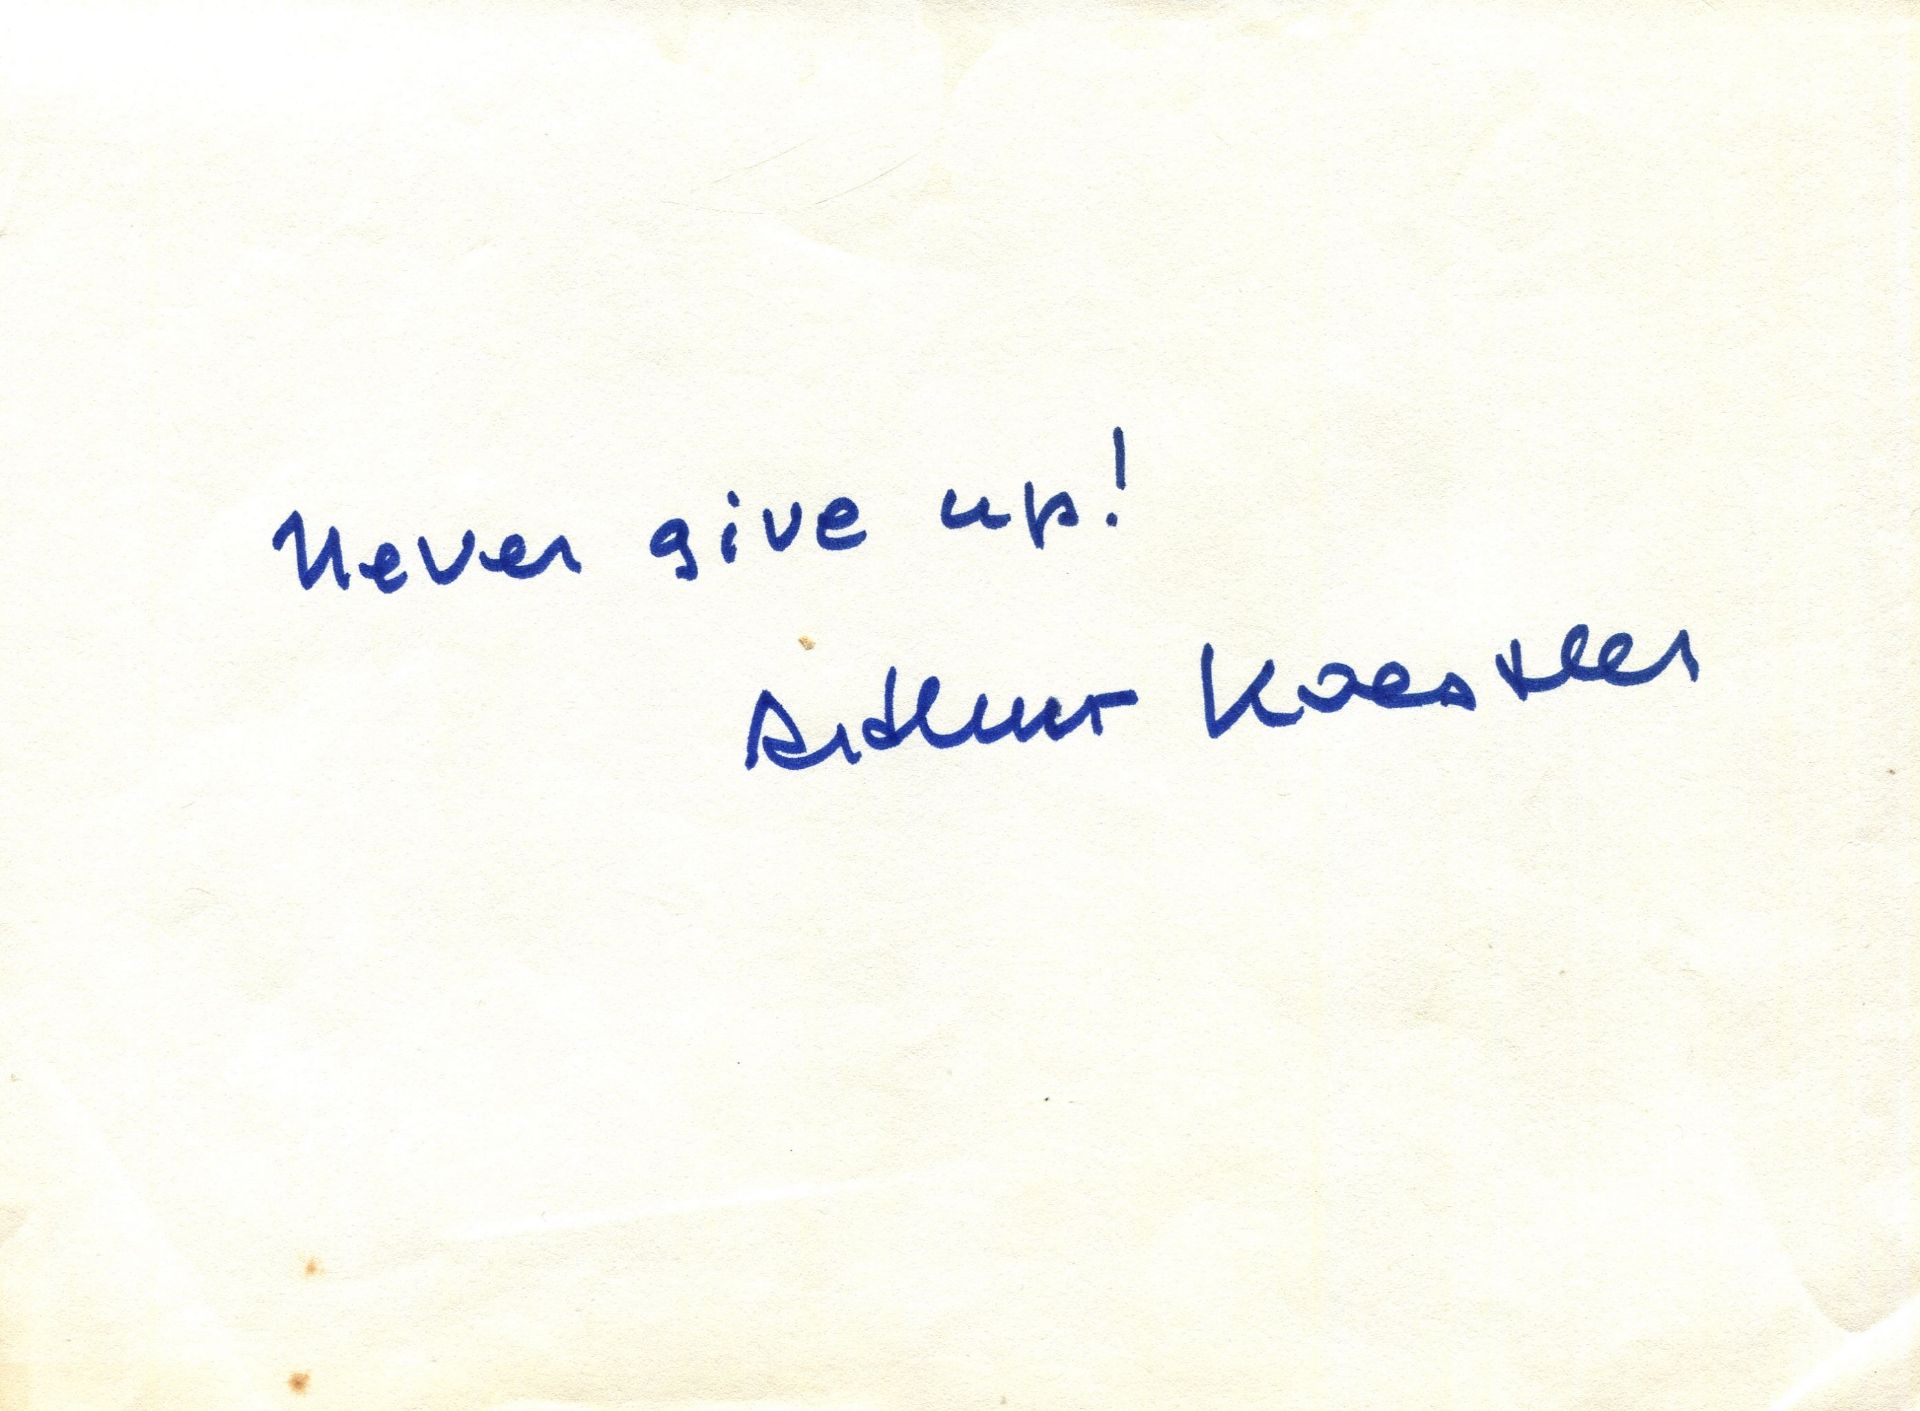 Never give up!
Arthur Koestler